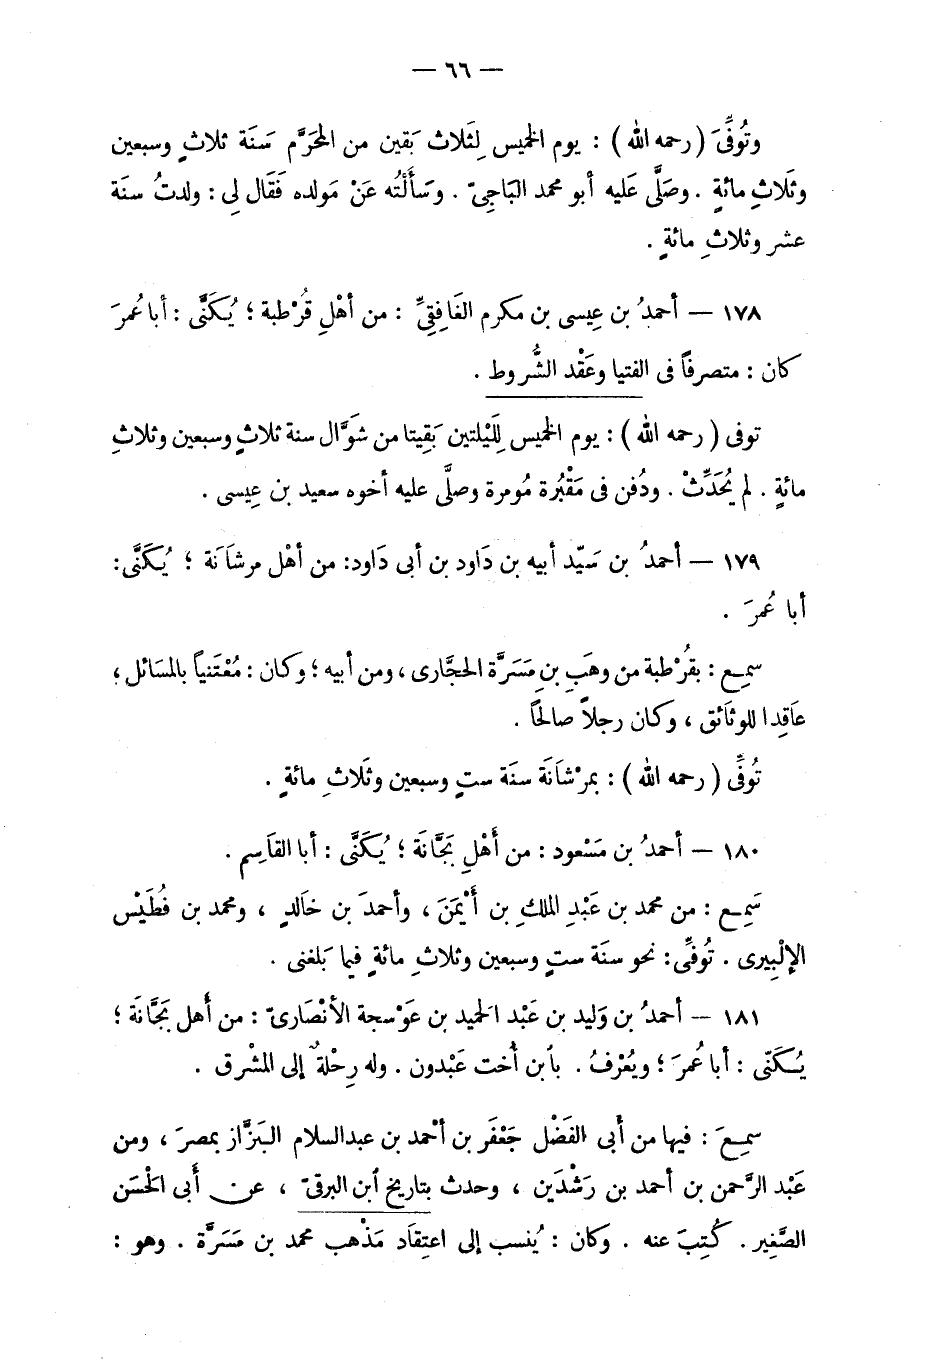 — ٦٦ —
وتُوفِّىَ ( رحمه الله ) : يوم الخميس لِثَلاث بَقين من المحَرَّم سَنَة ثلاثٍ وسبعين
وثَلاثِ مائةٍ . وصَلَّى عَليه أبو محمد البَاجِىّ . وسَأَلْتُه عَنْ مَولده فَقَال لِى : ولدتُ سنَة
عشر وثلاثِ مائةٍ .
١٧٨ — أحمدُ بن عِيسى بن مكرم الغَافِقِىِّ : من أهْلِ قُرْطبة ؛ يُكَنَّى : أبا عُمرَ
كان : متصرفاً فى الفتيا وعَقْد الشُّروط .
توفى ( رحمه الله ) : يوم الخميس لِلَيْلتين بَقِيتا من شوَّال سنة ثلاثٍ وسبعين وثلاثِ
مائةٍ . لم يُحَدِّثْ . ودُفن فى مَقْبُرة مُومرة وصلَّى عليه أخوه سعيد بن عِيسى .
١٧٩ — أحمدُ بن سَيّد أبيه بن دَاود بن أبى دَاود : من أهْل مرشَانَة ؛ يُكَنَّى :
أبا عُمرَ .
سمِع : بقُرْطبة من وهَبِ بنِ مَسَرَّة الحجَّارى ، ومن أبيه ؛ وكان : مُعْتَنياً بالمسَائل ؛
عَاقِدا للوثَائق ، وكان رجلاً صالحاً .
تُوفِّى ( رحمه الله ) : بمرْشَانَة سنَة ستٍ وسبعين وثَلَاثِ مائةٍ .
١٨٠ — أحمدُ بن مَسْعود : من أهْلِ بَجَّانَة ؛ يُكَنَّى : أبا القَاسِم .
سَمِع : من محمد بن عَبْدِ الملكِ بن أَيْمَنَ ، وأحمدَ بن خَالدٍ ، ومحمد بن فُطَيْس
الإلْبِيرى . تُوفِّى : نحو سنَة ستٍ وسبعين وثلاثِ مائةٍ فيما بَلغنى .
١٨١ — أحمدُ بن وَليد بن عَبْد الحميد بن عَوْسجة الأنْصَارىّ : من أهل بَجَّانَة ؛
يُكَنّى : أبا عُمرَ ؛ ويُعْرفُ . بأبن أخت عَبْدون . وله رِحْلةٌ إلى المشْرق .
سمِعَ : فيها من أبى الفَضْل جَعْفَر بن أحْمد بن عبدالسلام البَزَّاز بمصرَ ، ومن
عَبْد الرَّحمن بن أحمد بن رَشْدَين ، وحدث بتاريخ أبن البرقىّ ، عن أَبى الحْسَن
الصَّغِير . كُتِبَ عنه . وكان : يُنسب إلى اعتِقَاد مَذْهب محمد بن مَسَرَّة . وهو :